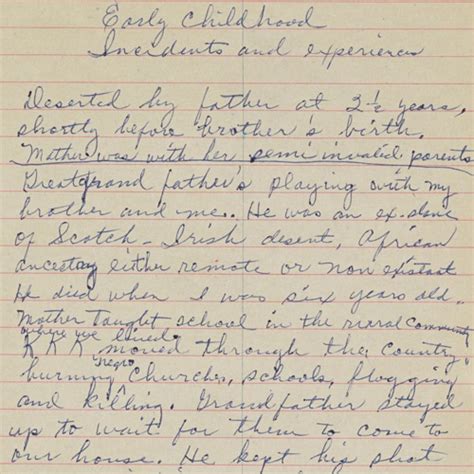 Early childhood
Incidents and experiences
Deserted by father at 2½ years,
shortly before brother's birth.
Mother was with her semi invalid parents
Greatgrand father's playing with my
brother and me. He was an ex-slave
of Scotch-Irish desent, African
ancestory either remote or non existant
He died when I was six years old.
Mother taught school in the rural community
where we lived.
KKK moved through the country
Negro
burning churches, schools, flogging
and killing. Grandfather stayed
up to wait for them to come to
our house. He kept his shot